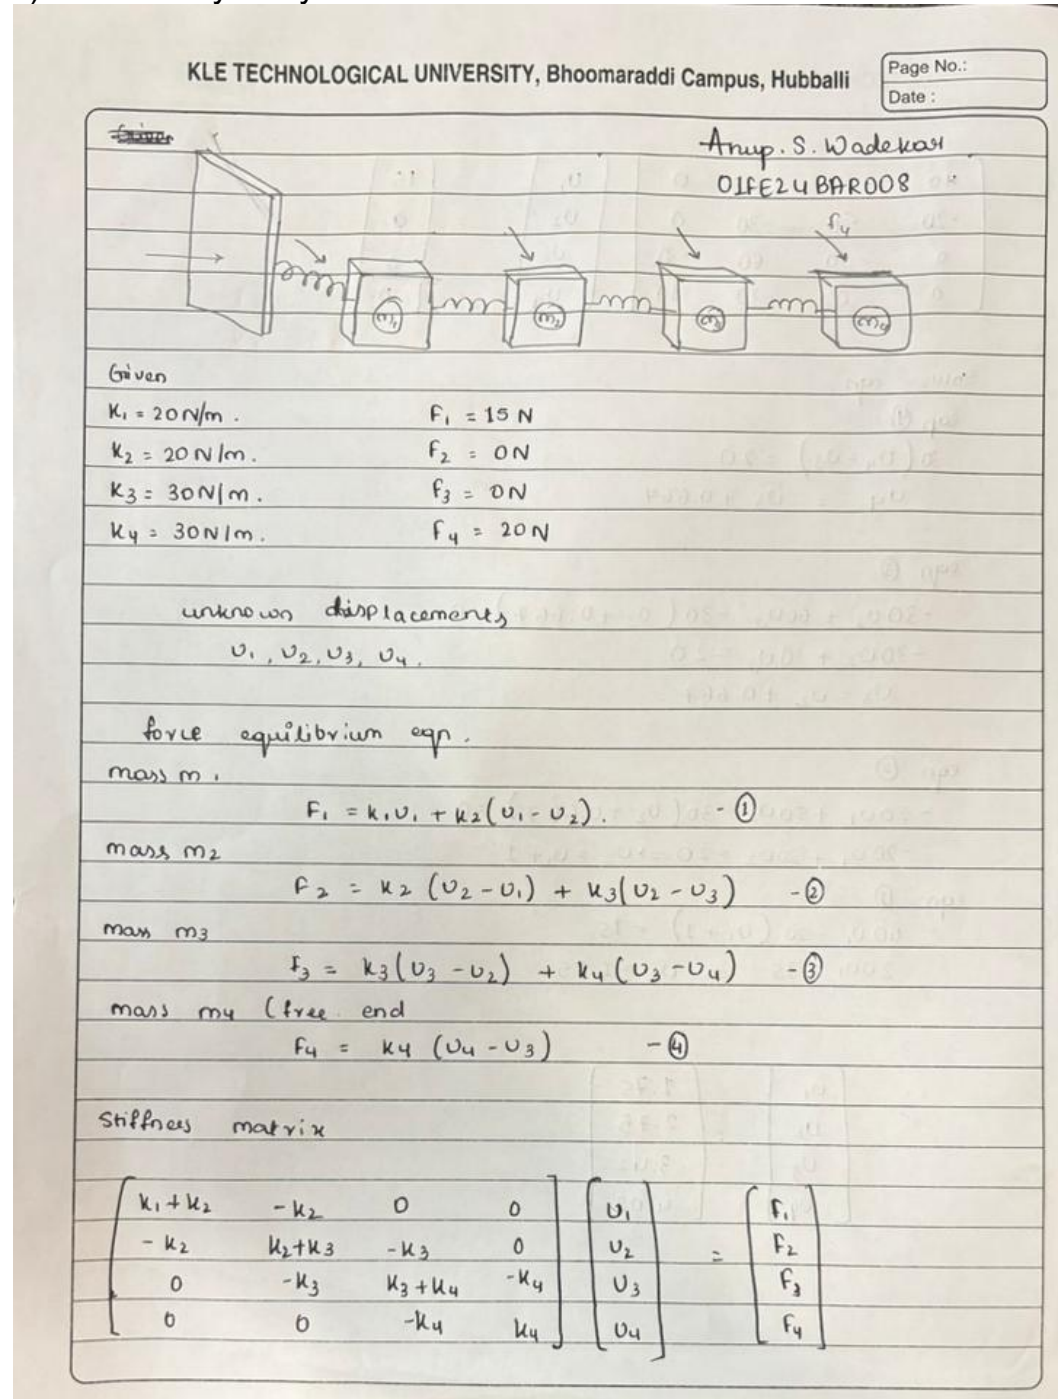 KLE TECHNOLOGICAL UNIVERSITY, Bhoomaraddi Campus, Hubballi
Page No.:
Date :
Anup. S. Wadekar
01FE24BAR008
f4
m1 m2 m3 m4
Given
K1 = 20N/m. F1 = 15 N
K2 = 20N/m. F2 = 0N
K3 = 30N/m. F3 = 0N
K4 = 30N/m. F4 = 20N
unknown displacements
U1, U2, U3, U4.
force equilibrium eqn.
mass m1
F1 = k1U1 + k2(U1 - U2). - ①
mass m2
F2 = k2 (U2 - U1) + k3(U2 - U3) - ②
mass m3
F3 = k3(U3 - U2) + k4(U3 - U4) - ③
mass m4 (free end
F4 = k4 (U4 - U3) - ④
Stiffnes matrix
k1+k2 -k2 0 0 U1 F1
-k2 k2+k3 -k3 0 U2 = F2
0 -k3 k3+k4 -k4 U3 F3
0 0 -k4 k4 U4 F4